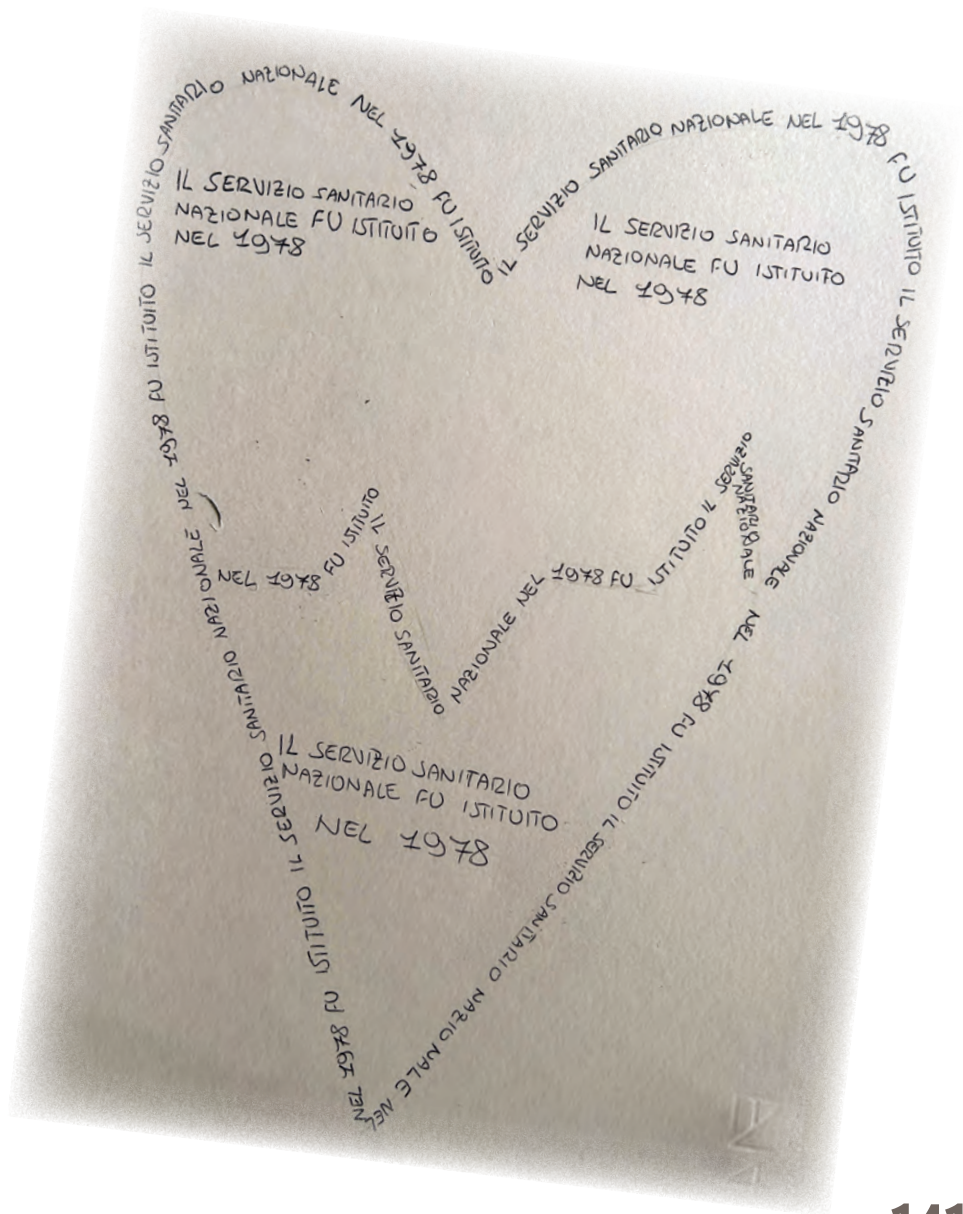 IL SERVIZIO SANITARIO NAZIONALE NEL 1978 FU ISTITUITO IL SERVIZIO SANITARIO NAZIONALE NEL 1978 FU ISTITUITO
IL SERVIZIO SANITARIO NAZIONALE NEL 1978 FU ISTITUITO IL SERVIZIO SANITARIO NAZIONALE
NEL 1978 FU ISTITUITO IL SERVIZIO SANITARIO NAZIONALE NEL
IL SERVIZIO SANITARIO
NAZIONALE FU ISTITUITO
NEL 1978
IL SERVIZIO SANITARIO
NAZIONALE FU ISTITUITO
NEL 1978
NEL 1978 FU ISTITUITO
IL SERVIZIO SANITARIO
NAZIONALE NEL 1978 FU ISTITUITO IL SERVIZIO
SANITARIO
NAZIONALE
IL SERVIZIO SANITARIO
NAZIONALE FU ISTITUITO
NEL 1978
NEL 1978 FU ISTITUITO
141